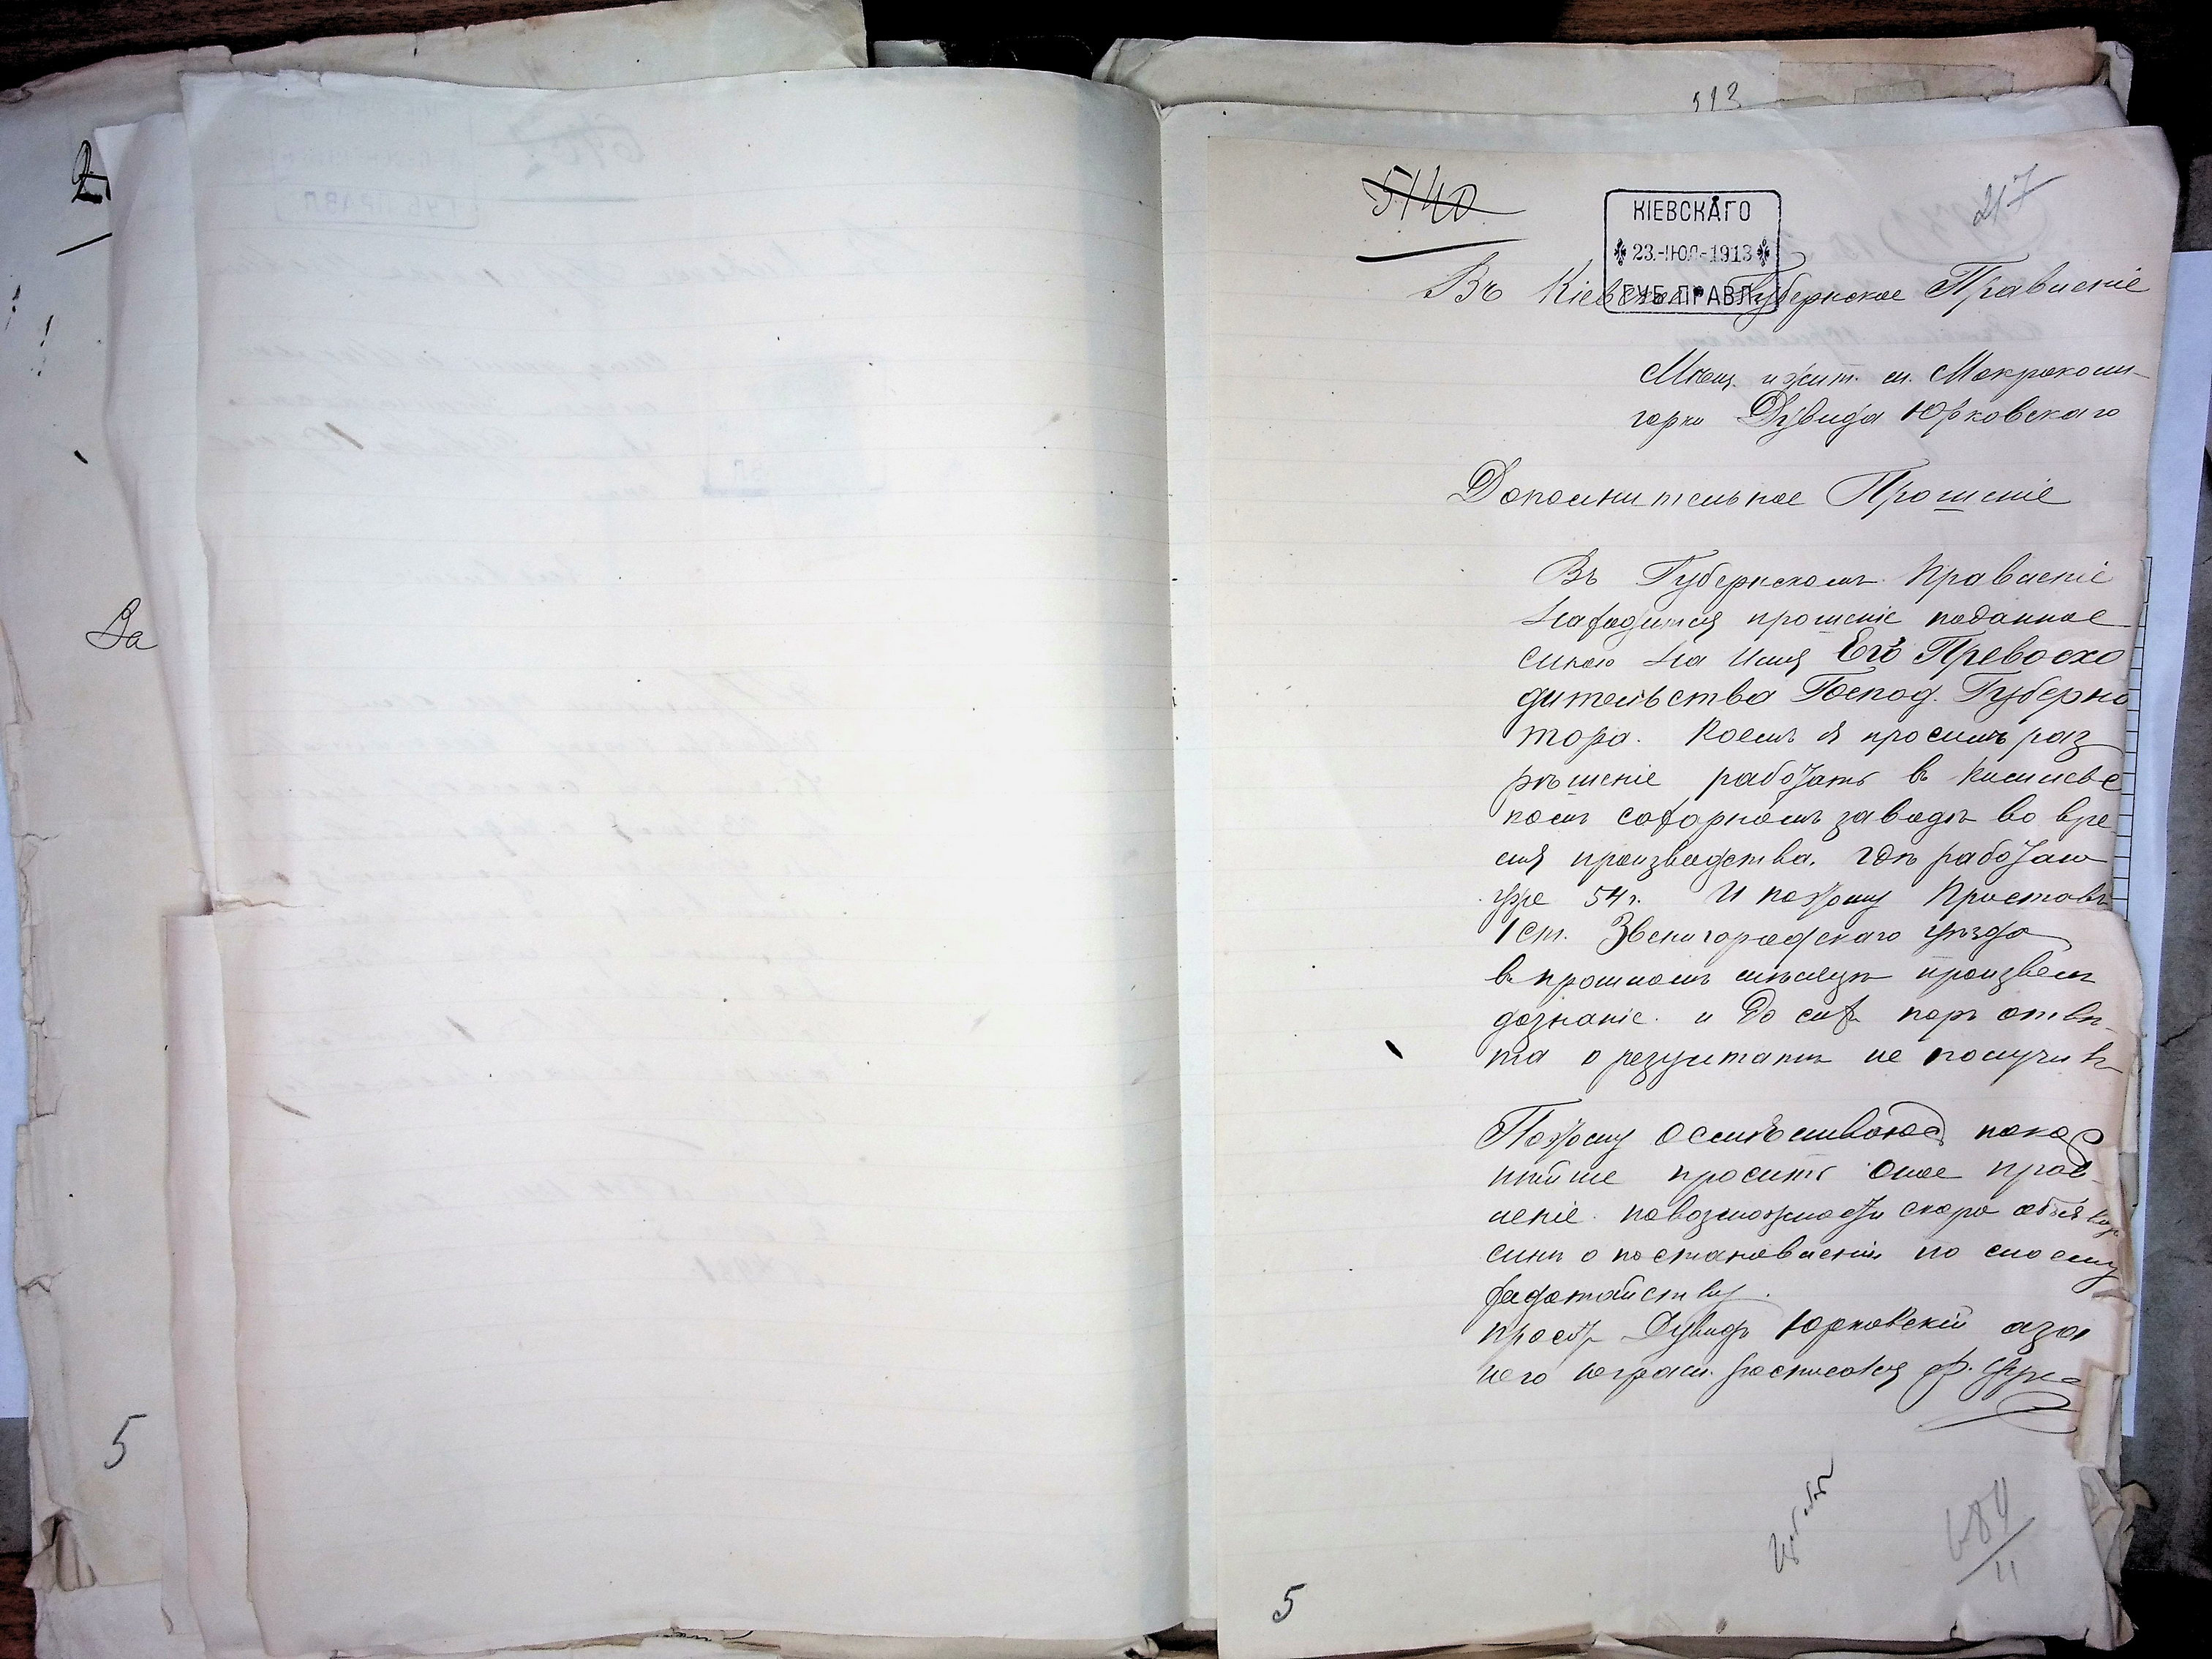 2
За
5
113
5140
217
КІЕВСКАГО
23-ІЮЛ-1913
ГУБ. ПРАВЛ.
Въ Кіевское Губернское Правленіе
Мѣщ. и жит. м. Мокрокоми-
горки Дувида Юрковскаго
Дополнительное Прошеніе
Въ Губернскомъ Правленіе
Находится прошеніе поданное
мною на имя Его Превосхо
дительства Господ. Губерна
тора. Коемъ я просилъ раз
рѣшеніе работать в
комъ сахарномъ заводѣ во вре
мя производства. гдѣ работаю
уже 54 г. И поэтому Приставъ
1 ст. Звенигородскаго уѣзда
в прошломъ мѣсяцѣ произвелъ
дознаніе. и до сих поръ отвѣ-
та о резултатѣ не получив
Поэтому осмѣливаюсь покор
нѣйше просить оное прав
леніе. повозможности скоро объявить
мнѣ о постановленіи по моему
хадатайству.
проси́т Дувидъ Юрковскій аза
него неграм. росписался
684
11
5